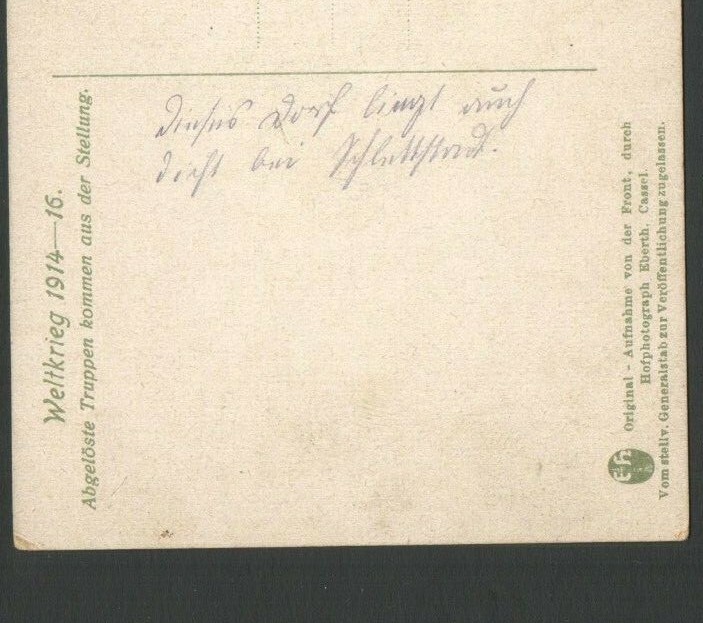 Weltkrieg 1914—16.
Abgelöste Truppen kommen aus der Stellung.
Dieses Dorf liegt auch
dicht bei Schlettstadt.
Original - Aufnahme von der Front, durch
Hofphotograph Eberth, Cassel.
Vom stellv. Generalstab zur Veröffentlichung zugelassen.